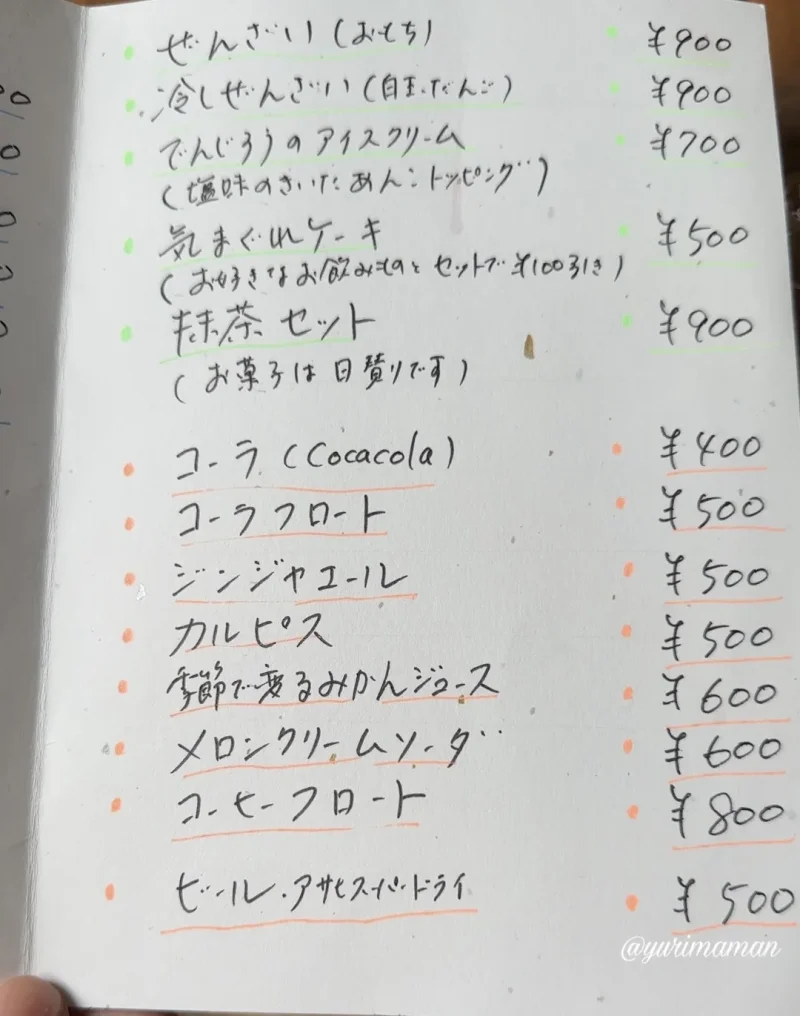 ぜんざい(おもち) ¥900
冷しぜんざい(白玉だんご) ¥900
でんじろうのアイスクリーム ¥700
(塩味のきいたあんこトッピング)
気まぐれケーキ ¥500
(お好きなお飲みものとセットで¥100引き)
抹茶セット ¥900
(お菓子は日替りです)
コーラ(Cocacola) ¥400
コーラフロート ¥500
ジンジャエール ¥500
カルピス ¥500
季節で変るみかんジュース ¥600
メロンクリームソーダ ¥600
コーヒーフロート ¥800
ビール・アサヒスーパードライ ¥500
@yurimaman